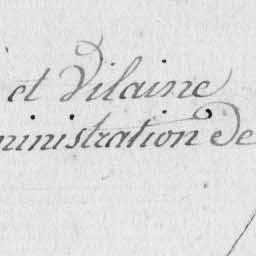 et Vilaine
ministration de